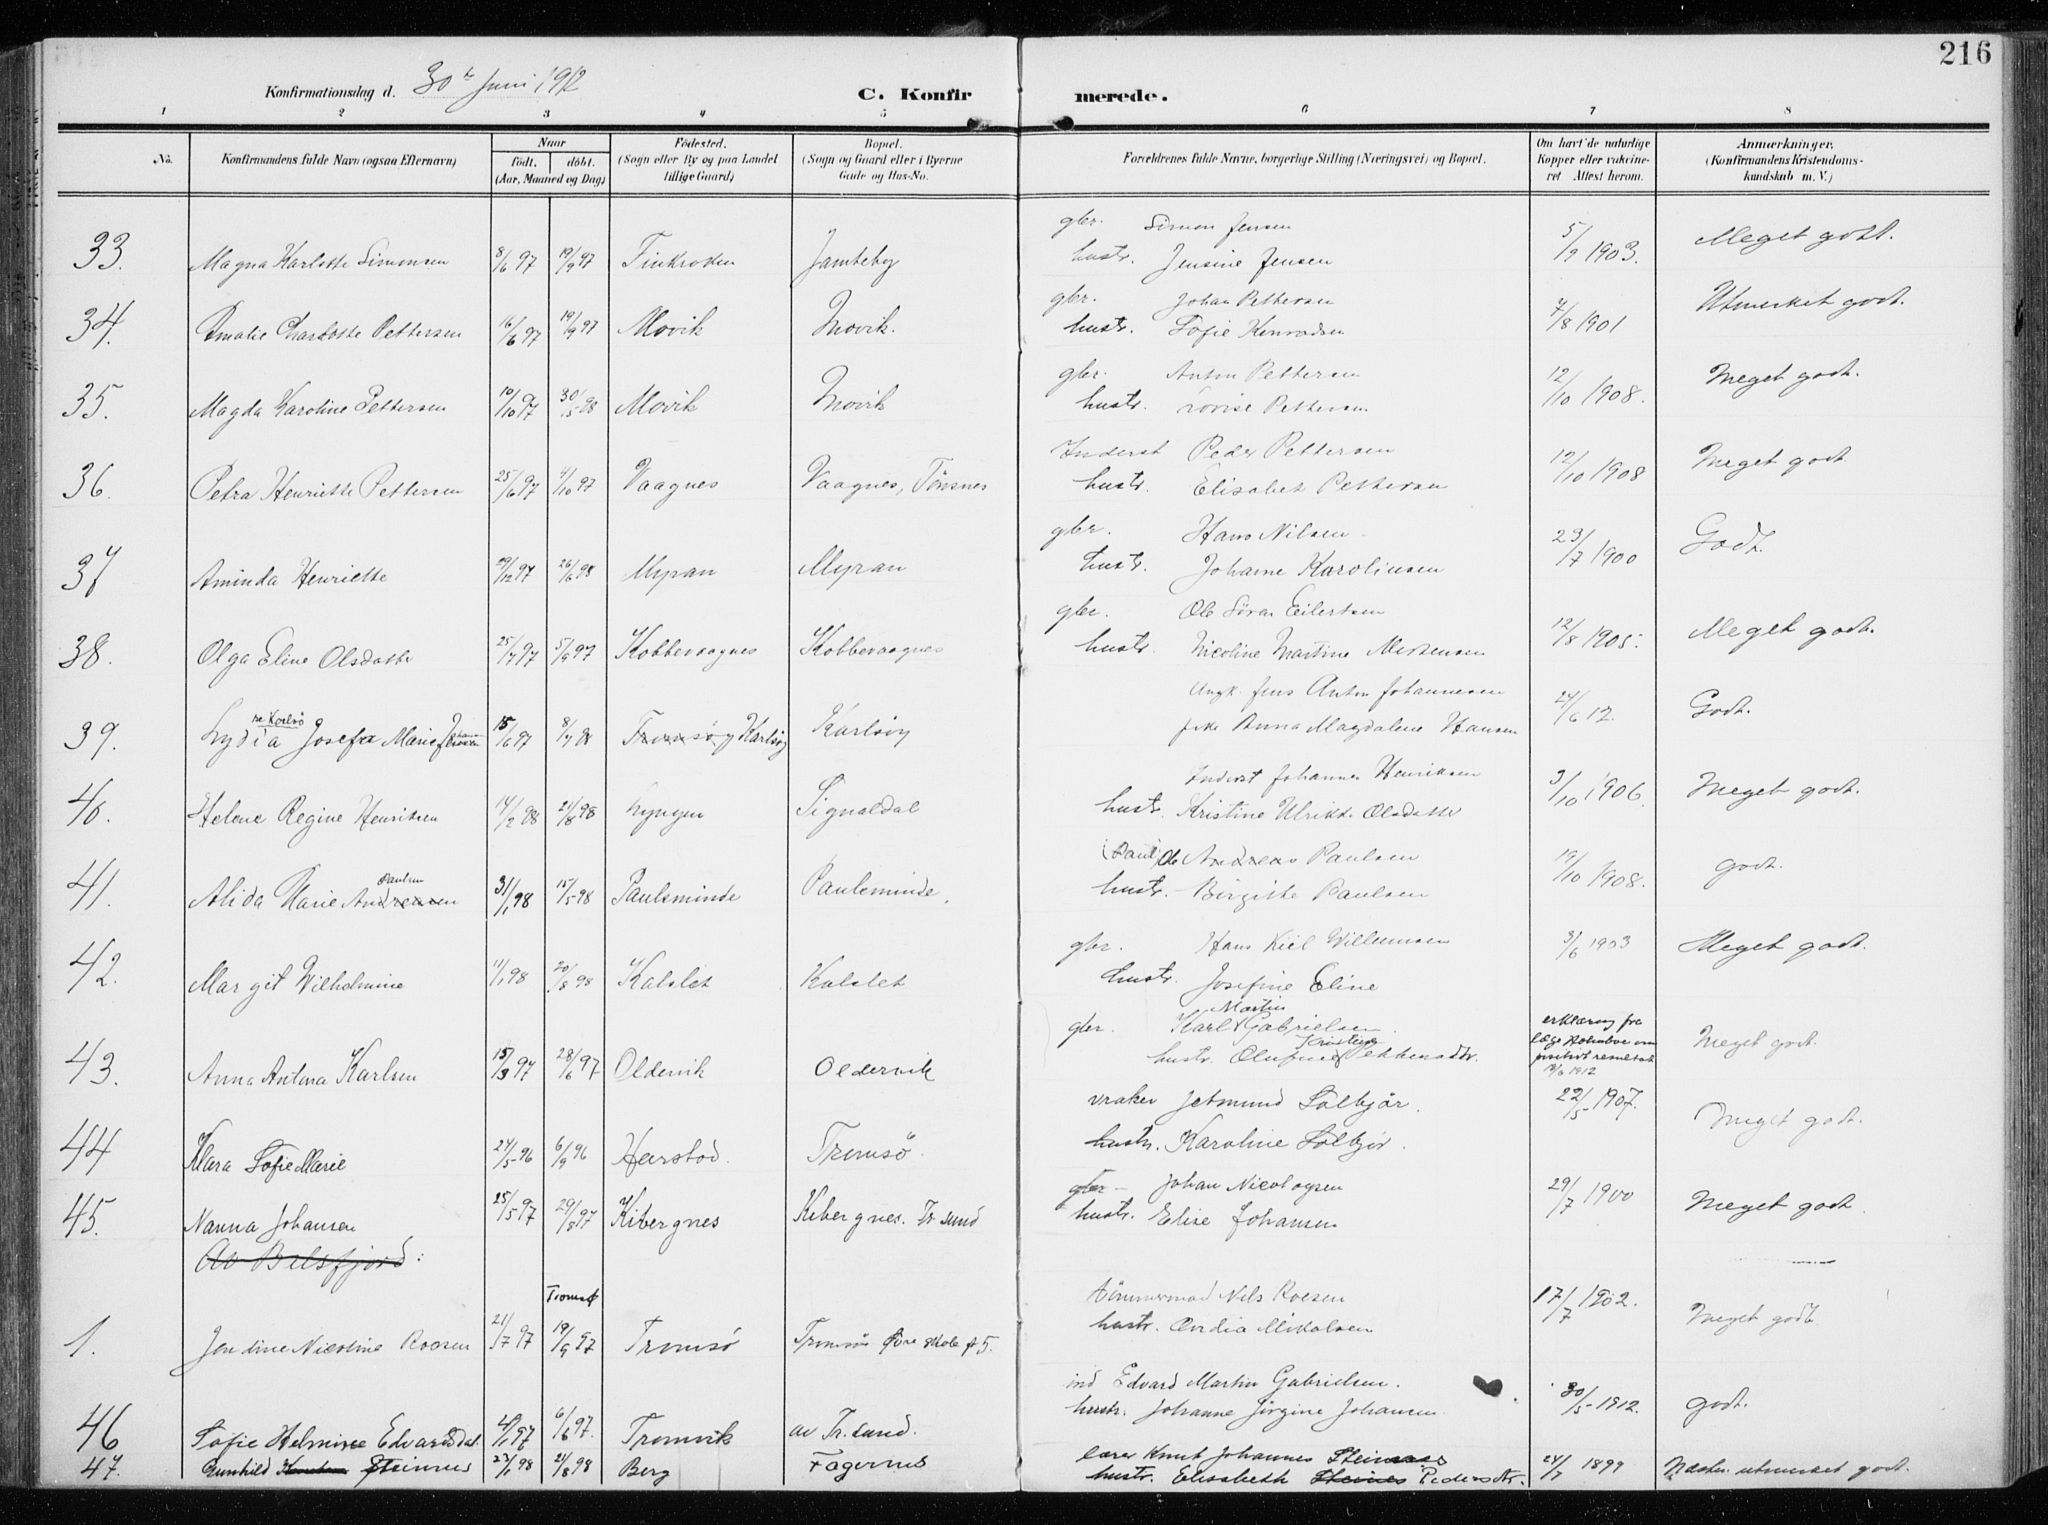 216
Konfirmationsdag d. 30te Juni 1912
C. Konfirmerede.
1 2 3 4 5 6 7 8
No. Konfirmandens fulde Navn (ogsaa Efternavn) Naar født. døbt. (Aar, Maaned og Dag) Fødested. (Sogn eller By og paa Landet tillige Gaard) Bopæl. (Sogn og Gaard eller i Byerne Gade og Hus-No. Forældrenes fulde Navne, borgerlige Stilling (Næringsvei) og Bopæl. Om havt de naturlige Kopper eller vakcineret Attest herom. Anmærkninger. (Konfirmandens Kristendomskundskab m. V.)
gbr. Simon Jensen
33. Magna Karlotte Simonsen 8/6 97 19/9 97 Finkroken Jamteby hustr. Jensine Jensen 5/9 1903. Meget godt.
gbr. Johan Pettersen
34. Amalie Charlotte Pettersen 16/6 97 19/9 97 Movik Movik. hustr. Sofie Konradsen 7/8 1901 Utmerket godt.
gbr. Anton Pettersen
35. Magda Karoline Pettersen 10/10 97 30/5 98 Movik Movik hustr. Lovise Pettersen 12/10 1908. Meget godt.
Inderst Peder Pettersen
36. Petra Henriette Pettersen 25/6 97 4/10 97 Vaagnes Vaagnes, Tönsnes hustr. Elisabet Pettersen 12/10 1908 Meget godt
gbr. Hans Nilsen
37 Aminda Henriette 29/12 97 26/6 98 Myran Myran hustr. Johanne Karolinsen 23/7 1900 Godt.
gbr. Ole Sören Eilertsen
38. Olga Eline Olsdatter 25/7 97 5/9 97 Kobbevaagnes Kobbevaagnes hustr. Nicoline Martine Mortensen 12/8 1905. Meget godt.
Ungk. Jens Anton Johannesen
39. Lydia Josefa Marie 15/6 97 8/7 98 Tromsöy Karlsöy Karlsöy pike Anna Magdalene Hansen 24/6 12. Godt.
Inderst Johannes Henriksen
40. Helene Regine Henriksen 14/2 98 21/8 98 Lyngen Signaldal hustr. Kristine Ulrikke Olsdatter 3/10 1906. Meget godt.
(Paul) Ole Andreas Paulsen
41. Alida Marie Andreasen Paulsen 31/1 98 15/5 98 Paulsminde Paulsminde. hustr. Birgitte Paulsen 19/10 1908. godt.
gbr. Hans Kiil Willumsen
42. Margit Wilhelmine 11/1 98 20/8 98 Kalslet Kalslet hustr. Josefine Eline 3/6 1903 Meget godt.
gbr. Karl Martin Gabrielsen.
43. Anna Antona Karlsen 15/3 97 28/6 97 Oldervik Oldervik hustr. Olufine Kristine Pettersdtr. erklæring fra læge Holmboe om positivt resultat 19/6 1912 Meget godt.
vraker Jetmund Solbjör.
44 Klara Sofie Marie 24/5 96 6/9 96 Harstad. Tromsö. hustr. Karoline Solbjör. 22/5 1907. Meget godt.
gbr Johan Nicolaysen
45. Nanna Johansen 25/5 97 29/8 97 Kibergnes Kibergnes. Tr. sund hustr. Elise Johansen 29/7 1900 Meget godt.
Av Balsfjord:
Tromsø
tömmermand Nils Roesen
1. Jendine Nicoline Roesen 21/7 97 19/9 97 Tromsö Tromsö Övre skole g 5. hustr. Ovidia Mikalsen 17/7 1902. Meget godt
ind Edvard Martin Gabrielsen.
46 Sofie Helmine Edvardsdat. 4/1 97 6/6 97. Tromvik av Tr. sund. hustr. Johanne Jörgine Johansen. 30/5 1912. godt.
lærer Knut Johannes Steinnes
47. Gunhild Steinnes 23/1 98 21/8 98 Berg Fagernes hustr. Elisabeth Steines Pedersdtr. 24/7 1899 Næsten utmerket godt.